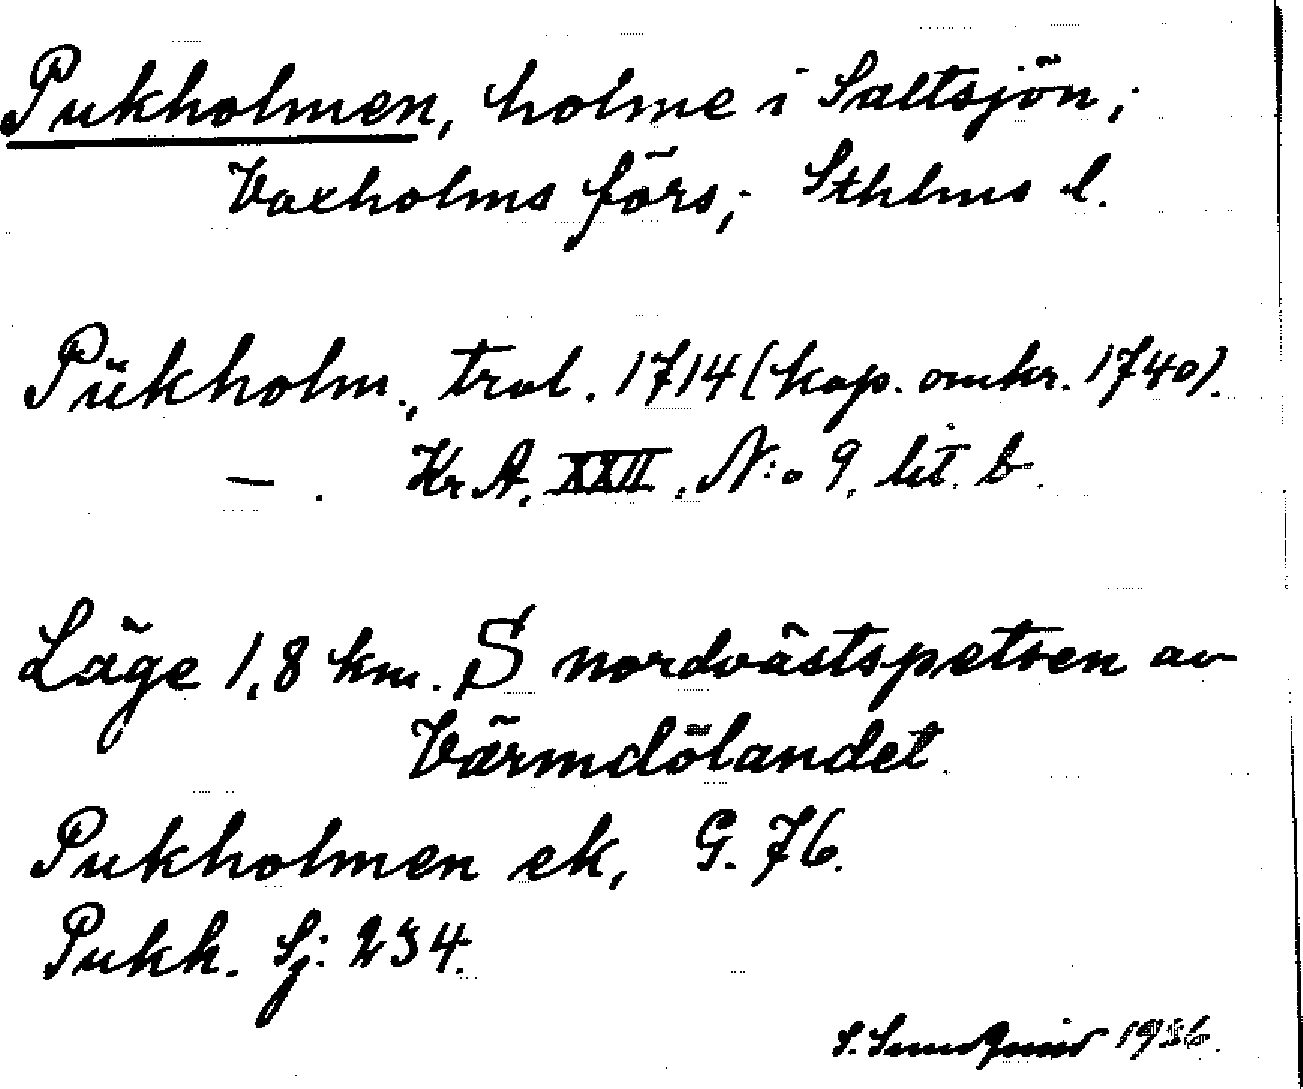 Pukholmen, holme i Saltsjön;
Vaxholms förs; Sthlms l.
Pükholm., trol. 1714 (kop. omkr. 1740).
— . Kr A. XXII. N:o 9. lit. b.
Läge 1,8 km. S nordvästspetsen av
Värmdölandet.
Pukholmen ek, G. 76.
Pukh. Sj: 234.
S. Sundquist 1936.